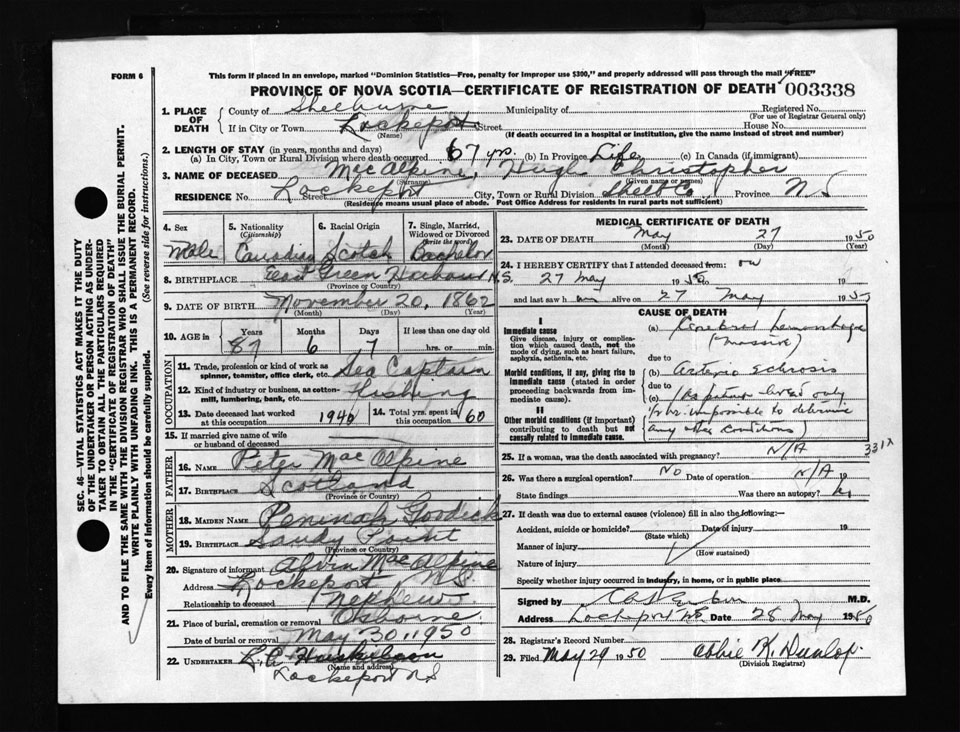 FORM 6
This form if placed in an envelope, marked "Dominion Statistics—Free, penalty for improper use $300," and properly addressed will pass through the mail "FREE"
PROVINCE OF NOVA SCOTIA—CERTIFICATE OF REGISTRATION OF DEATH 003338
1. PLACE OF DEATH County of Shelburne Municipality of Registered No.
(For use of Registrar General only)
If in City or Town Lockeport Street House No.
(Name) (If death occurred in a hospital or institution, give the name instead of street and number)
2. LENGTH OF STAY (in years, months and days)
(a) In City, Town or Rural Division where death occurred 67 yrs. (b) In Province Life (c) In Canada (if immigrant)
3. NAME OF DECEASED MacAlpine, Hugh Christopher
(Surname) (Given name or names)
RESIDENCE No. Lockeport Street City, Town or Rural Division Shelb Co Province N S
(Residence means usual place of abode. Post Office Address for residents in rural parts not sufficient)
4. Sex 5. Nationality (Citizenship) 6. Racial Origin 7. Single, Married, Widowed or Divorced (write the word)
Male Canadian Scotch Bachelor
8. BIRTHPLACE East Green Harbour N.S.
(Province or Country)
9. DATE OF BIRTH November 20, 1862
(Month) (Day) (Year)
10. AGE IN Years Months Days If less than one day old
87 6 7 hrs. or min.
OCCUPATION
11. Trade, profession or kind of work as spinner, teamster, office clerk, etc. Sea Captain
12. Kind of industry or business, as cotton-mill, lumbering, bank, etc. Fishing
13. Date deceased last worked at this occupation 1940 14. Total yrs. spent in this occupation 60
15. If married give name of wife or husband of deceased
FATHER
16. Name Peter MacAlpine
17. Birthplace Scotland
(Province or Country)
MOTHER
18. MAIDEN NAME Peninah Goodick
19. BIRTHPLACE Sandy Point
(Province or Country)
20. Signature of informant Alvin MacAlpine
Address Lockeport N S.
Relationship to deceased Nephew
21. Place of burial, cremation or removal Osborne
Date of burial or removal May 30, 1950
22. UNDERTAKER
(Name and address)
Lockeport NS
MEDICAL CERTIFICATE OF DEATH
23. DATE OF DEATH May 27 1950
(Month) (Day) (Year)
24. I HEREBY CERTIFY that I attended deceased from: on
27 May 1950
and last saw him alive on 27 May 1950
CAUSE OF DEATH
I
Immediate cause
Give disease, injury or complication which caused death, not the mode of dying, such as heart failure, asphyxia, asthenia, etc.
(a) Cerebral hemorrhage
(massive)
due to
Morbid conditions, if any, giving rise to immediate cause (stated in order proceeding backwards from immediate cause).
(b) arterio sclerosis
due to
(c) (As patient lived only
1 hr. impossible to determine
any other conditions)
II
Other morbid conditions (if important) contributing to death but not causally related to immediate cause.
25. If a woman, was the death associated with pregnancy? N/A 331X
26. Was there a surgical operation? No Date of operation N/A 19
State findings Was there an autopsy?
27. If death was due to external causes (violence) fill in also the following:
Accident, suicide or homicide? Date of injury 19
(State which)
Manner of injury
(How sustained)
Nature of injury
Specify whether injury occurred in industry, in home, or in public place
Signed by M.D.
Address Lockeport N.S. Date 28 May 1950
28. Registrar's Record Number
29. Filed May 29 1950 Abbie K. Dunlop.
(Division Registrar)
SEC. 46—VITAL STATISTICS ACT MAKES IT THE DUTY
OF THE UNDERTAKER OR PERSON ACTING AS UNDER-
TAKER TO OBTAIN ALL THE PARTICULARS REQUIRED
IN THE "CERTIFICATE OF REGISTRATION OF DEATH"
AND TO FILE THE SAME WITH THE DIVISION REGISTRAR WHO SHALL ISSUE THE BURIAL PERMIT.
WRITE PLAINLY WITH UNFADING INK. THIS IS A PERMANENT RECORD.
Every item of information should be carefully supplied. (See reverse side for instructions.)